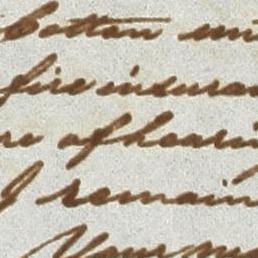 bottom
fire insuran
re of hearin
I remain
Your